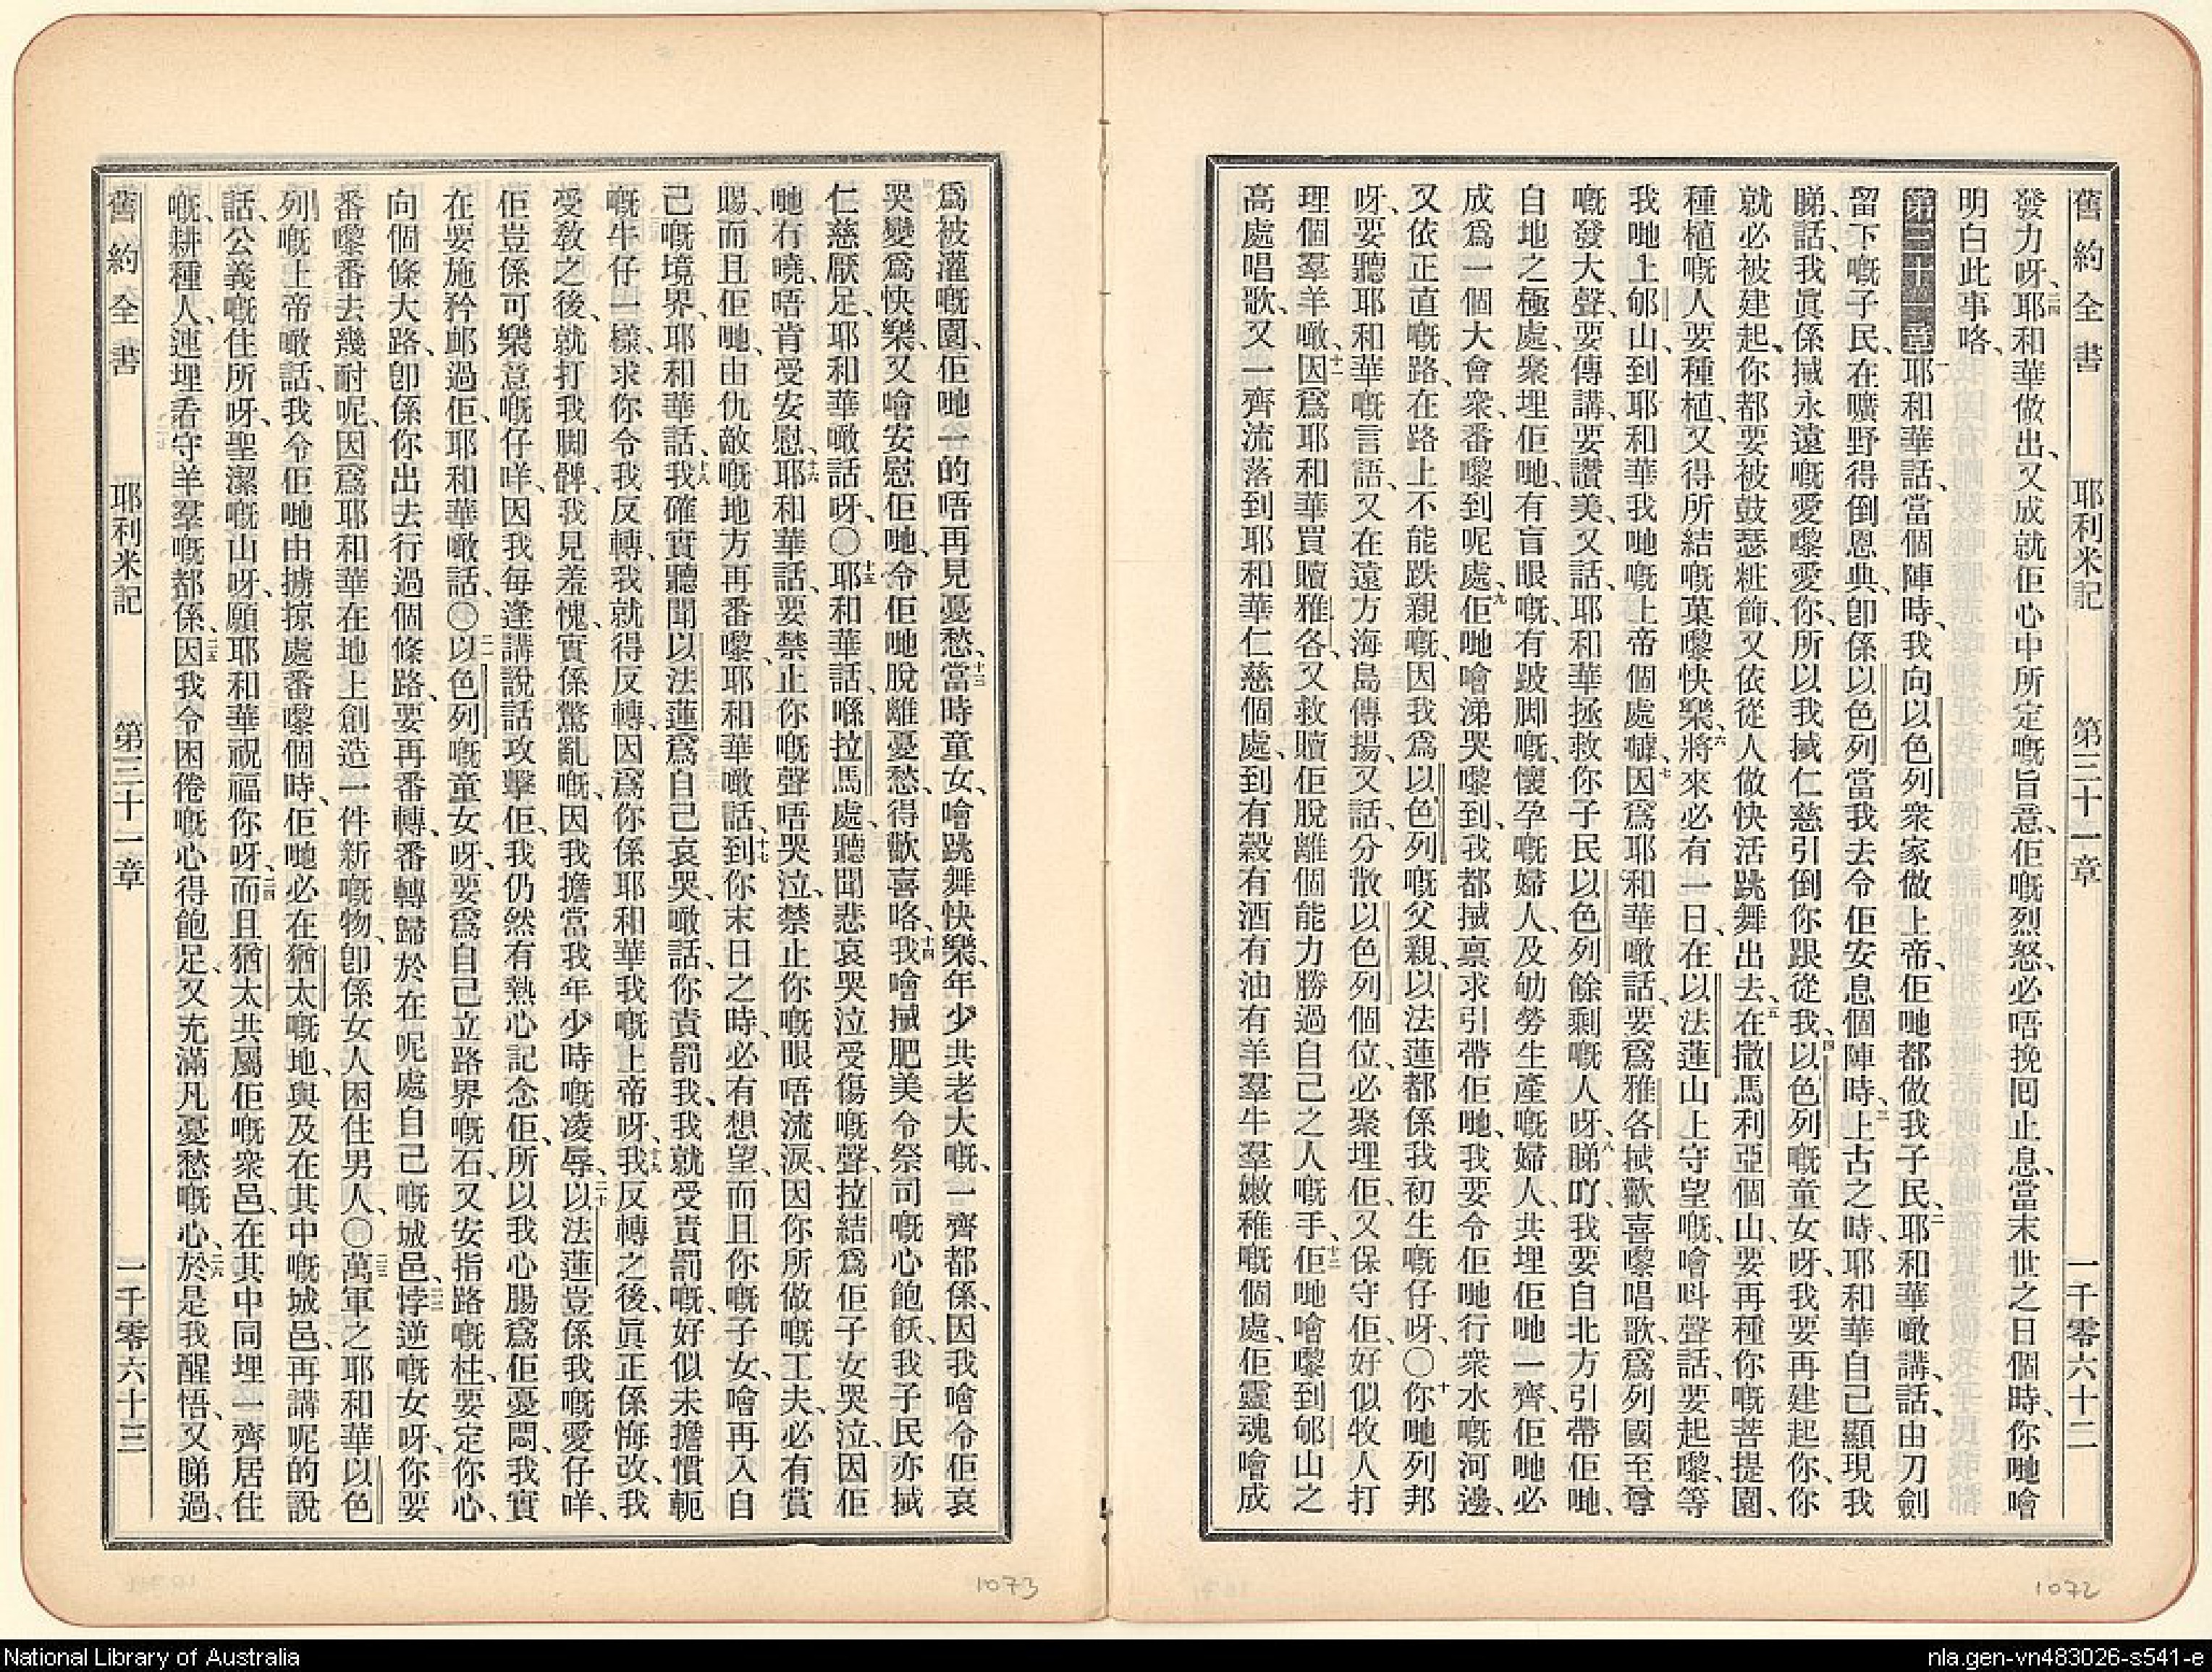 舊約全書 耶利米記 第三十一章 一千零六十二
發力呀、二四耶和華做出、又成就佢心中所定嘅旨意、佢嘅烈怒、必唔挽回止息、當末世之日個時、你哋噲
明白此事咯、
第三十一章 一耶和華話、當個陣時、我向以色列衆家做上帝、佢哋都做我子民、二耶和華噉講、話、由刀劍
留下嘅子民、在曠野得倒恩典、卽係以色列當我去令佢安息個陣時、三上古之時、耶和華自己顯現我
睇、話、我眞係搣永遠嘅愛嚟愛你、所以我搣仁慈引倒你跟從我、四以色列嘅童女呀、我要再建起你、你
就必被建起、你都要被鼓瑟粧飾、又依從人做快活跳舞出去、五在撒馬利亞個山、要再種你嘅菩提園、
種植嘅人要種植、又得所結嘅菓嚟快樂、六將來必有一日、在以法蓮山上守望嘅、噲呌聲話、要起嚟、等
我哋上郇山、到耶和華我哋嘅上帝個處𡃓、七因爲耶和華噉話、要爲雅各搣歡喜嚟唱歌、爲列國至尊
嘅發大聲、要傳講、要讚美、又話、耶和華拯救你子民以色列餘剩嘅人呀、八睇吖、我要自北方引帶佢哋、
自地之極處、聚埋佢哋、有盲眼嘅、有跛脚嘅、懷孕嘅婦人、及劬勞生產嘅婦人、共埋佢哋一齊、佢哋必
成爲一個大會衆、番嚟到呢處、九佢哋噲涕哭嚟到、我都搣禀求引帶佢哋、我要令佢哋行衆水嘅河邊、
又依正直嘅路、在路上不能跌親嘅、因我爲以色列嘅父親、以法蓮都係我初生嘅仔呀、〇十你哋列邦
呀、要聽耶和華嘅言語、又在遠方海島傳揚、又話、分散以色列個位、必聚埋佢、又保守佢、好似牧人打
理個羣羊噉、十一因爲耶和華買贖雅各、又救贖佢脫離個能力勝過自己之人嘅手、十二佢哋噲嚟到郇山之
高處唱歌、又一齊流落到耶和華仁慈個處、到有穀有酒有油有羊羣牛羣嫩稚嘅個處、佢靈魂噲成
1072
爲被灌嘅園、佢哋一的唔再見憂愁、十三當時童女、噲跳舞快樂、年少共老大嘅、一齊都係、因我噲令佢哀
哭變爲快樂、又噲安慰佢哋、令佢哋脫離憂愁、得歡喜咯、十四我噲搣肥美令祭司嘅心飽飫、我子民亦搣
仁慈厭足、耶和華噉話呀、〇十五耶和華話、喺拉馬處、聽聞悲哀哭泣受傷嘅聲、拉結爲佢子女哭泣、因佢
哋冇曉、唔肯受安慰、十六耶和華話、要禁止你嘅聲唔哭泣、禁止你嘅眼唔流淚、因你所做嘅工夫、必有賞
賜、而且佢哋、由仇敵嘅地方再番嚟、耶和華噉話、十七到你末日之時、必有想望、而且你嘅子女、噲再入自
己嘅境界、耶和華話、十八我確實聽聞以法蓮爲自己哀哭、噉話、你責罰我、我就受責罰嘅、好似未擔慣軛
嘅牛仔一樣、求你令我反轉、我就得反轉、因爲你係耶和華我嘅上帝呀、十九我反轉之後、眞正係悔改、我
受敎之後、就打我脚髀、我見羞愧、實係驚亂嘅、因我擔當我年少時嘅凌辱、二十以法蓮豈係我嘅愛仔咩、
佢豈係可樂意嘅仔咩、因我每逢講說話攻擊佢、我仍然有熱心記念佢、所以我心腸爲佢憂悶、我實
在要施矜邮過佢、耶和華噉話、〇二一以色列嘅童女呀、要爲自己立路界嘅石、又安指路嘅柱、要定你心、
向個條大路、卽係你出去行過個條路、要再番轉、番轉歸於在呢處自己嘅城邑、二二悖逆嘅女呀、你要
番嚟番去幾耐呢、因爲耶和華在地上創造一件新嘅物、卽係女人困住男人、〇二三萬軍之耶和華以色
列嘅上帝噉話、我令佢哋由擄掠處番嚟個時、佢哋必在猶太嘅地、與及在其中嘅城邑、再講呢的說
話、公義嘅住所呀、聖潔嘅山呀、願耶和華祝福你呀、二四而且猶太共屬佢嘅衆邑、在其中同埋一齊居住
嘅、耕種人、連埋看守羊羣嘅都係、二五因我令困倦嘅心得飽足、又充滿凡憂愁嘅心、二六於是我醒悟、又睇過、
舊約全書 耶利米記 第三十一章 一千零六十三
1073
National Library of Australia
nla.gen-vn483026-s541-e